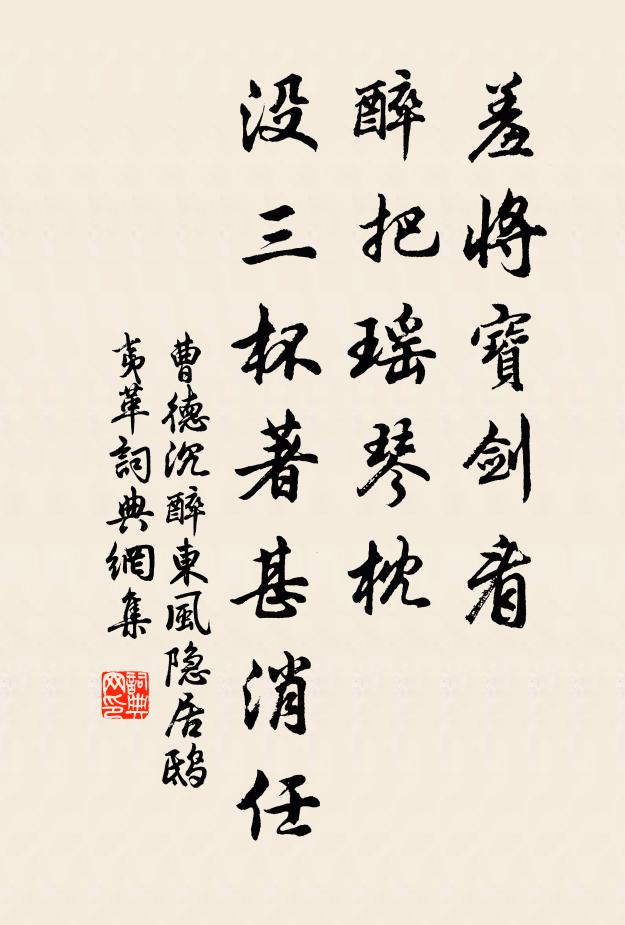 羞將寶劍看
醉把瑶琴枕
没三杯著甚消任
曹德沉醉東風隐居鴟
夷革詞典網集
詞典
网印